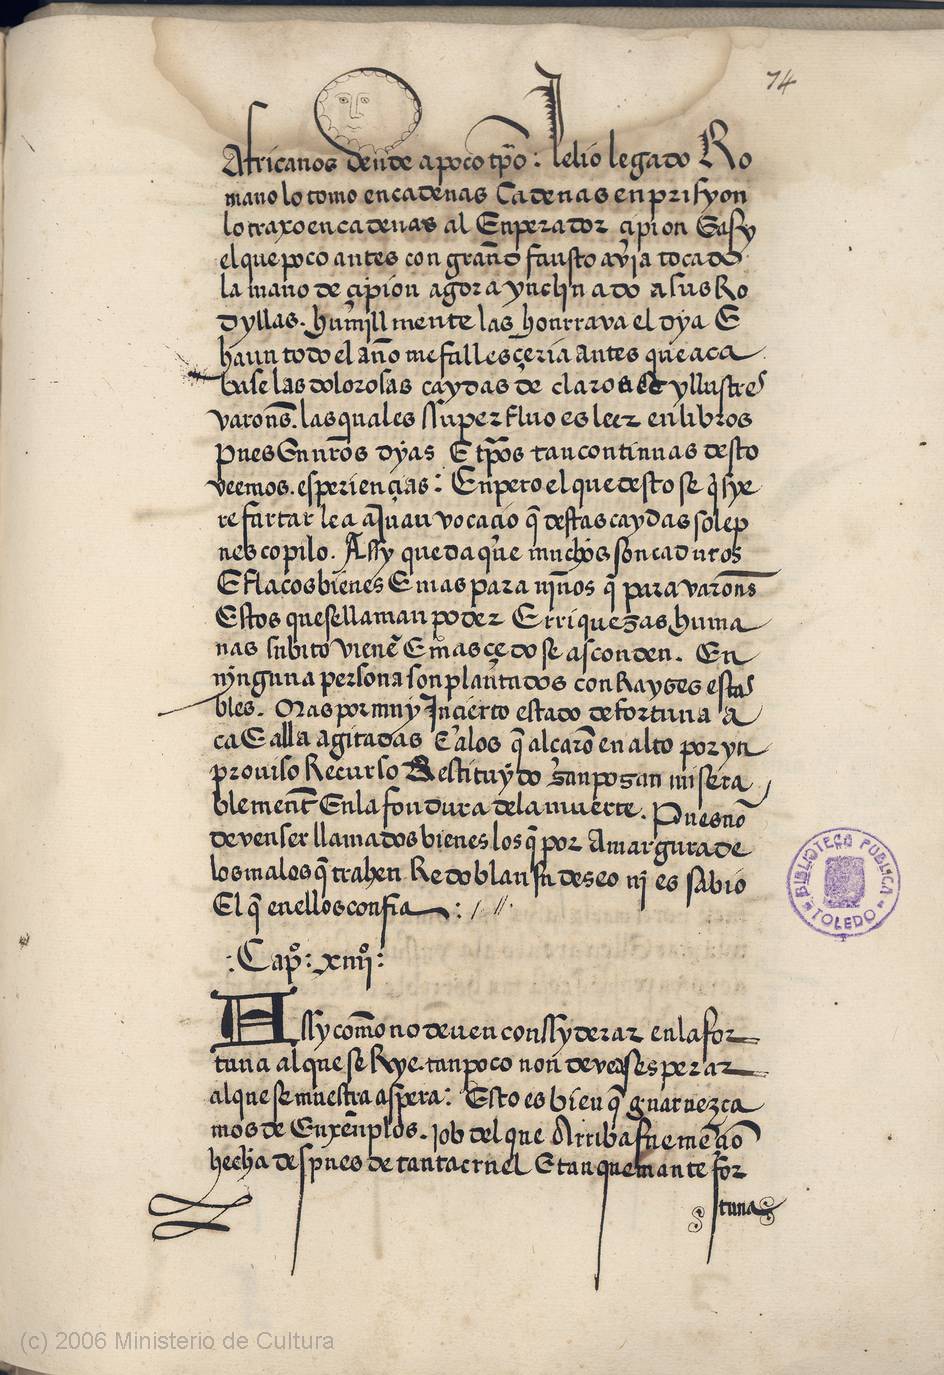 74
Africanos dende a poco tp̃o: lelio legado Ro
mano lo tomo en cadenas Cadenas en prisyon
lo traxo en cadenas al Enperador cipion Sasy
el que poco antes con grand fausto avia tocado
la mano de cipion agora ynclinado a sus Ro
dyllas. humill mente las honrrava el dya E
haun todo el año me fallesçeria antes que aca
base las dolorosas caydas de claros Et yllustres
varons. las quales ssuperfluo es leer en libros
pues En nr̃os dyas E tp̃os tan continuas desto
veemos. esperiençias: Enpero el que desto se q̃sye
re fartar lea a Juan vocacio q̃ destas caydas solep
nes copilo. Assy que da que muchos son caducos
E flacos bienes E mas para niños q̃ para varons
Estos que se llaman poder E rriquezas huma
nas subito vienẽ E mas çedo se asconden. En
ninguna persona son plantados con Rayses esta
bles. Mas por muy Incierto estado de fortuna a
ca E alla agitadas E a los q̃ alcarõ en alto por yn
proviso Recurso Restituydo Sanpozan misera
ble ment̃ En la fondura de la muerte. Pues no
deven ser llamados bienes los q̃ por Amargura de
los males q̃ trahen Redoblan su deseo ni es sabio
El q̃ en ellos confia:
:Capº: xiiijº:
Assy commo no deven conssyderar en la for
tuna al que se Rye. tanpoco non deve desesperar
al que se muestra aspera: Esto es bien q̃ guarnezca
mos de Enxẽnplos. job del que Arriba fue mẽçiõ
hecha despues de tanta cruel E tan quemante for
tuna
BIBLIOTECA PUBLICA
TOLEDO
(c) 2006 Ministerio de Cultura